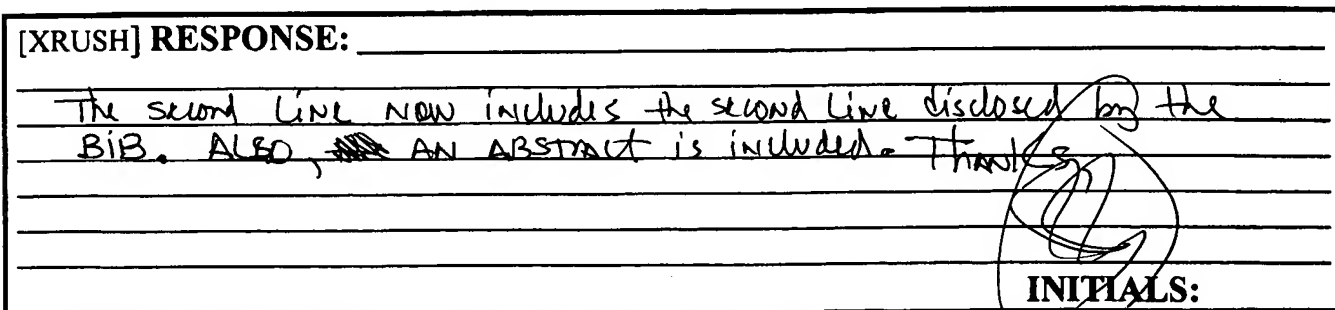 [XRUSH] RESPONSE:
The second Line NOW includes the second Line disclosed by the
BiB. ALSO, AN ABSTRACT is included. Thanks
INITIALS: